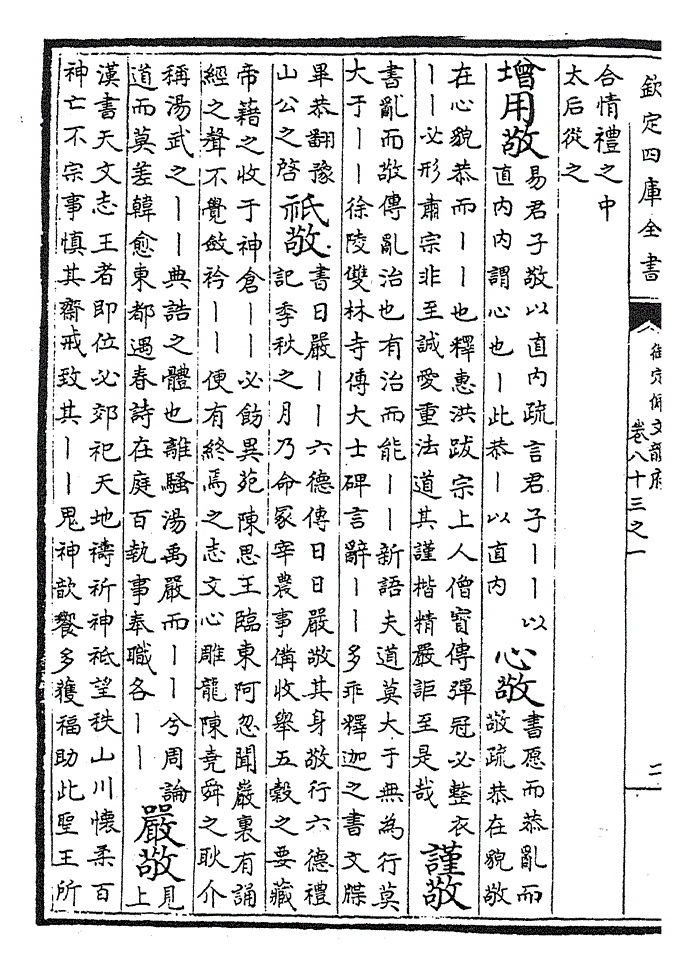 欽定四庫全書
御定佩文韻府
卷八十三之一
二
合情禮之中
太后從之
增用敬
易君子敬以直内疏言君子丨丨以
直内内謂心也丨此恭丨以直内
心敬
書愿而恭亂而
敬疏恭在貌敬
在心貌恭而丨丨也釋惠洪跋宗上人僧寶傳彈冠必整衣
丨丨必形肅宗非至誠愛重法道其謹楷精嚴詎至是哉
謹敬
書亂而敬傳亂治也有治而能丨丨新語夫道莫大于無為行莫
大于丨丨徐陵雙林寺傅大士碑言辭丨丨多乖釋迦之書文牒
畢恭翻豫
山公之啓
祗敬
書日嚴丨丨六德傳日日嚴敬其身敬行六德禮
記季秋之月乃命冢宰農事備收舉五穀之要藏
帝籍之收于神倉丨丨必飭異苑陳思王臨東阿忽聞巖裏有誦
經之聲不覺斂衿丨丨便有終焉之志文心雕龍陳堯舜之耿介
稱湯武之丨丨典誥之體也離騷湯禹嚴而丨丨兮周論
道而莫差韓愈東都遇春詩在庭百執事奉職各丨丨
嚴敬
見
上
漢書天文志王者即位必郊祀天地禱祈神祇望秩山川懷柔百
神亡不宗事慎其齋戒致其丨丨鬼神歆饗多獲福助此聖王所